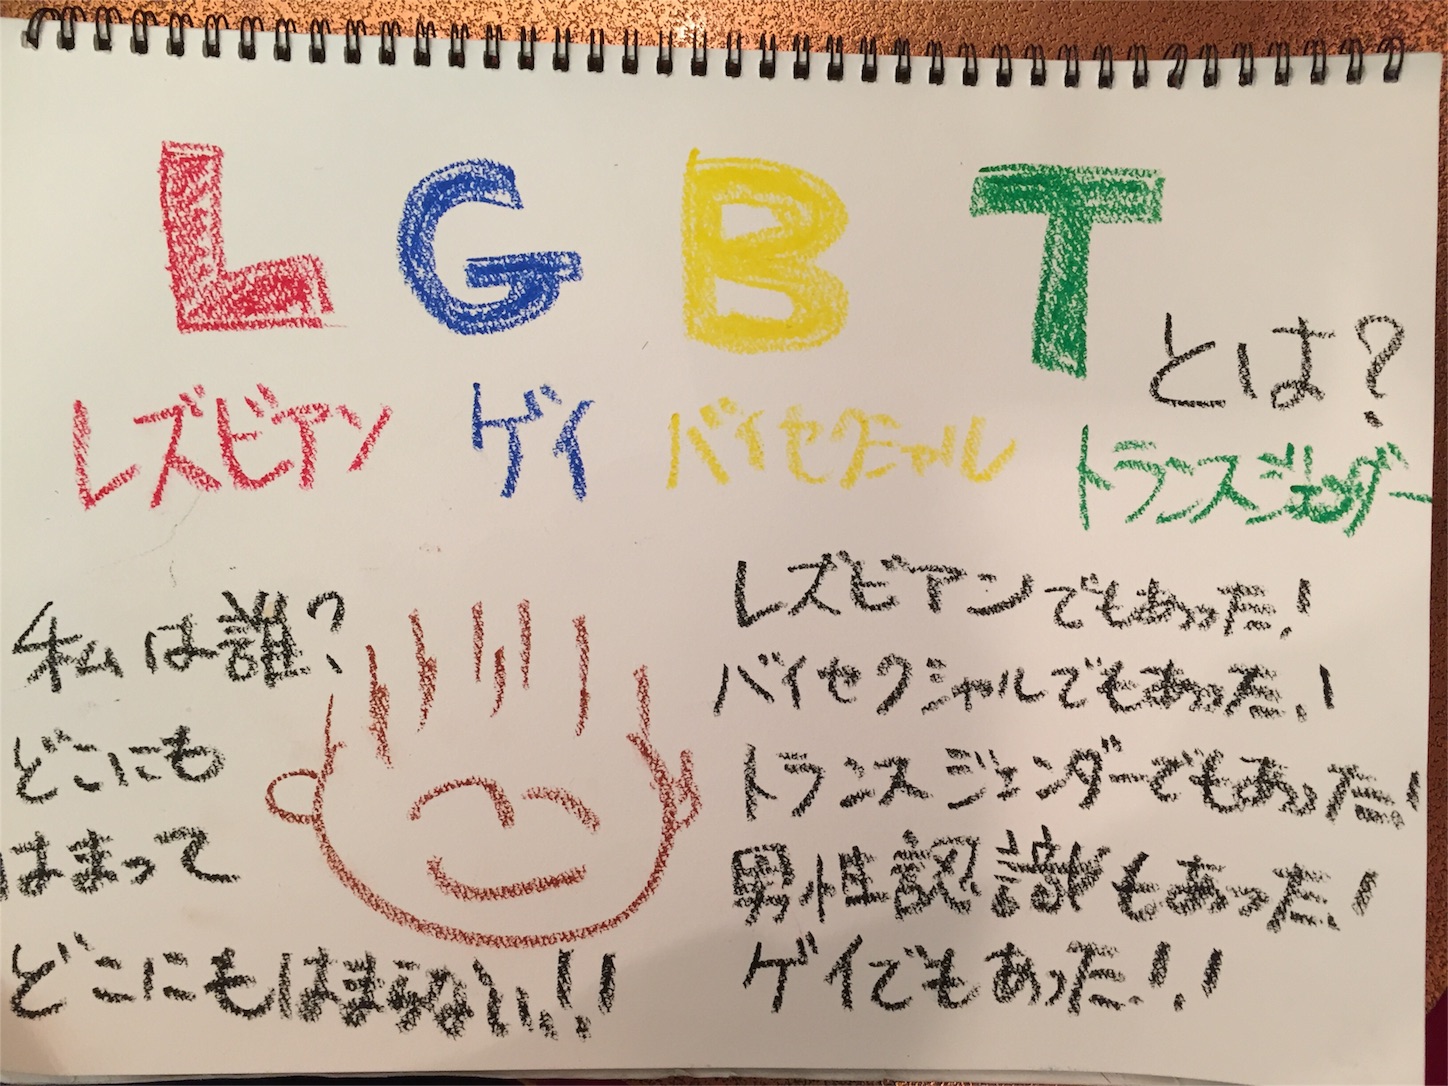 LGBTとは?
レズビアン ゲイ バイセクシャル トランスジェンダー
私は誰?
どこにも
はまって
どこにもはまらない!!
レズビアンでもあった!
バイセクシャルでもあった!
トランスジェンダーでもあった!
男性認識でもあった!
ゲイでもあった!!